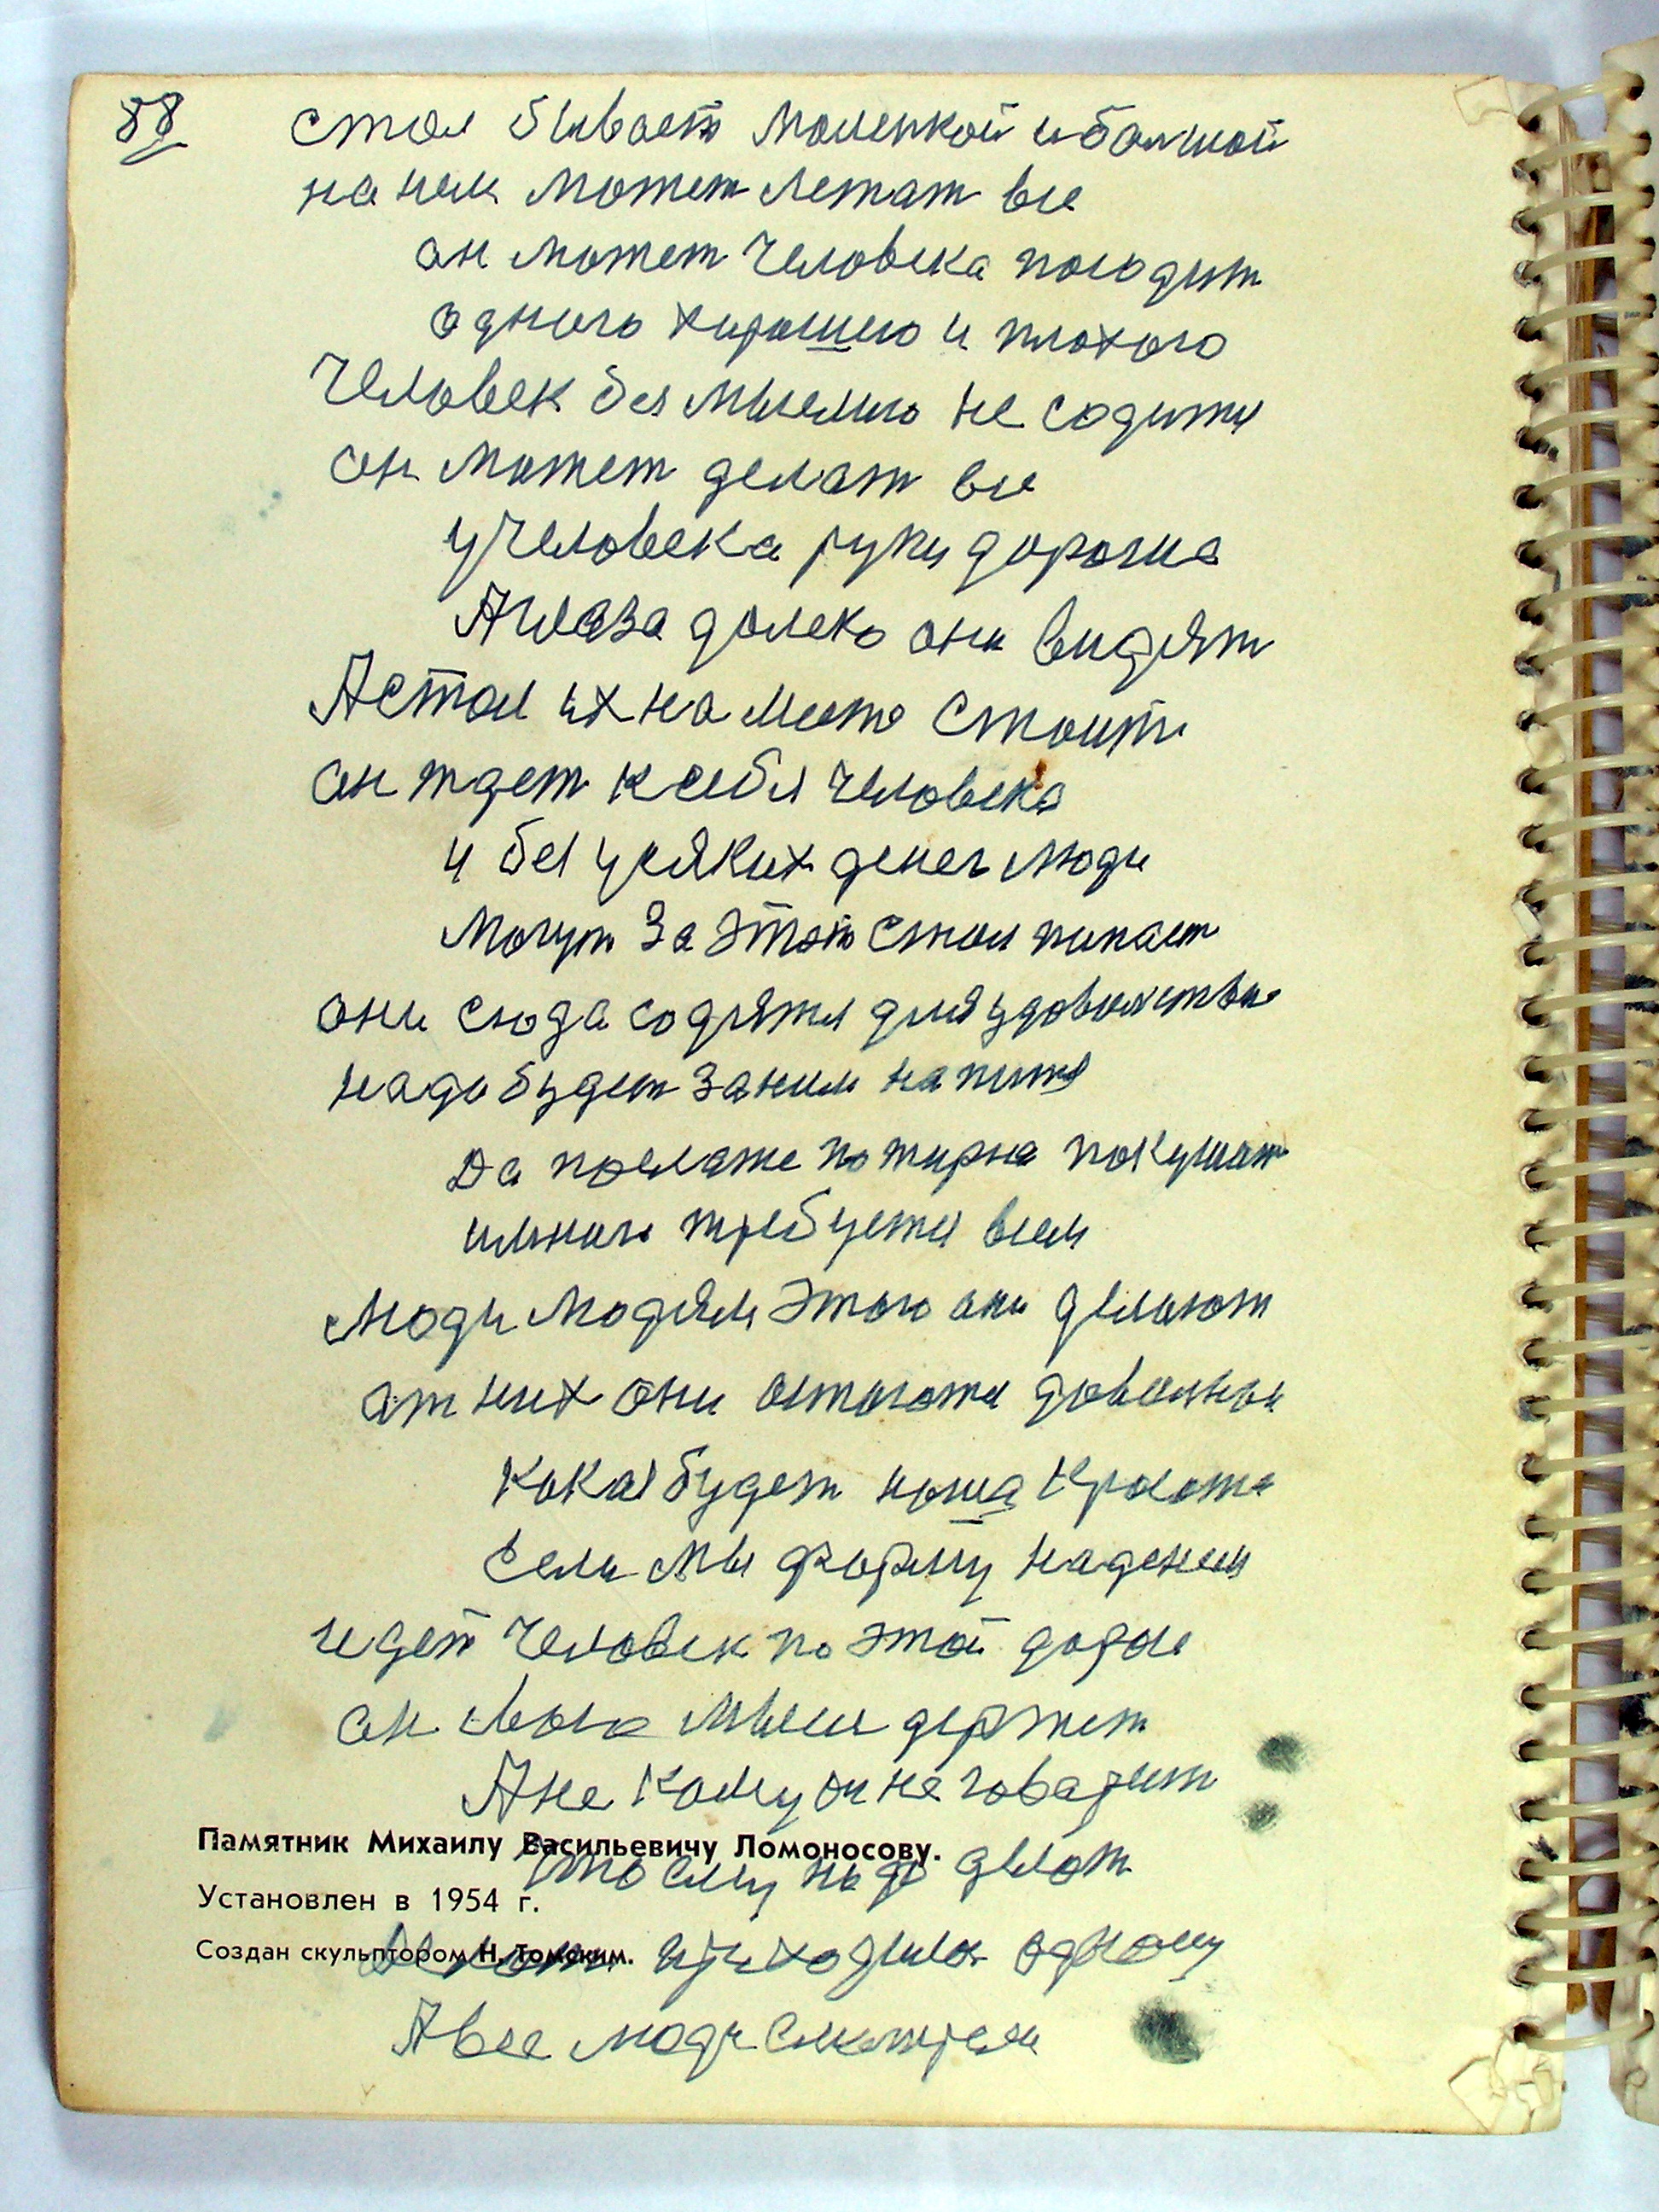 88
стол бывает моленкой и балшой
на нем можем лежат все
он может человека посодит
одного хорошего и плохого
Человек без мыслию не содится
он может делат все
у человека руки дорогие
А глаза далеко они видят
А стол их на месте стоит
он ждет к себя человека
и без усяких денег люди
могут за этот стол попаст
они сюда содятся для удовольствие
надо будет за ним напится
Да послаже пожирне покушат
имного требуется всем
люди людям этого они делают
от них они остаются довольнои
какая будет наша красота
если мы форму наденем
идет человек по этой дороге
он свои мысли держит
А не кому он не говарит
Памятник Михаилу Васильевичу Ломоносову.
что ему надо делат
Установлен в 1954 г.
Создан скульптором Н. Томским.
приходилос одному
А все люди смотрели